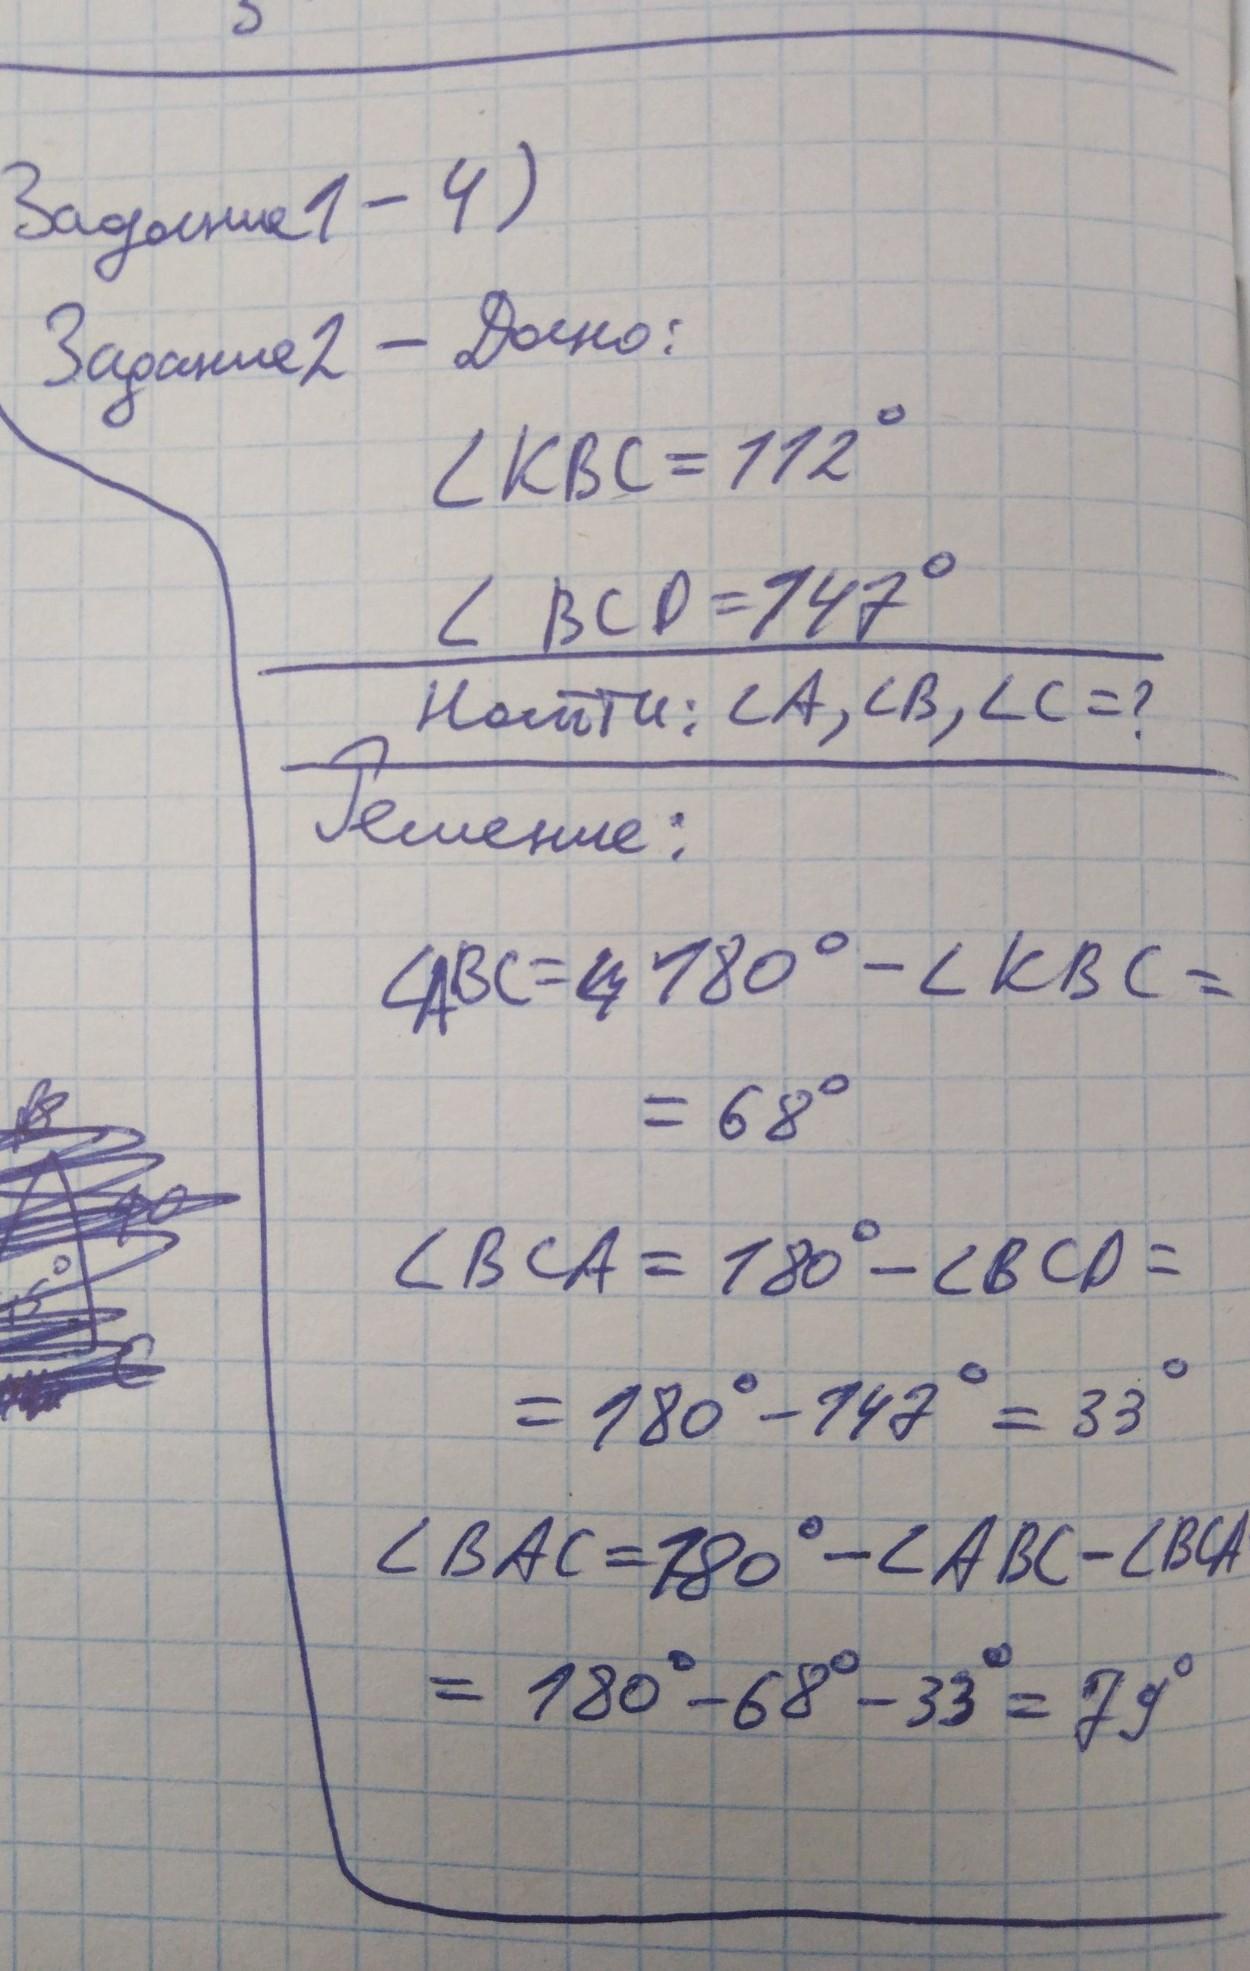 Задание1 - 4)
Задание2 - Дано:
∠KBC=112°
∠ BCD=147°
Найти: ∠A, ∠B, ∠C=?
Решение:
∠ABC= 180° - ∠KBC =
= 68°
∠BCA = 180° - ∠BCD =
= 180° - 147° = 33°
∠BAC=180° - ∠ABC - ∠BCA
= 180° - 68° - 33° = 79°